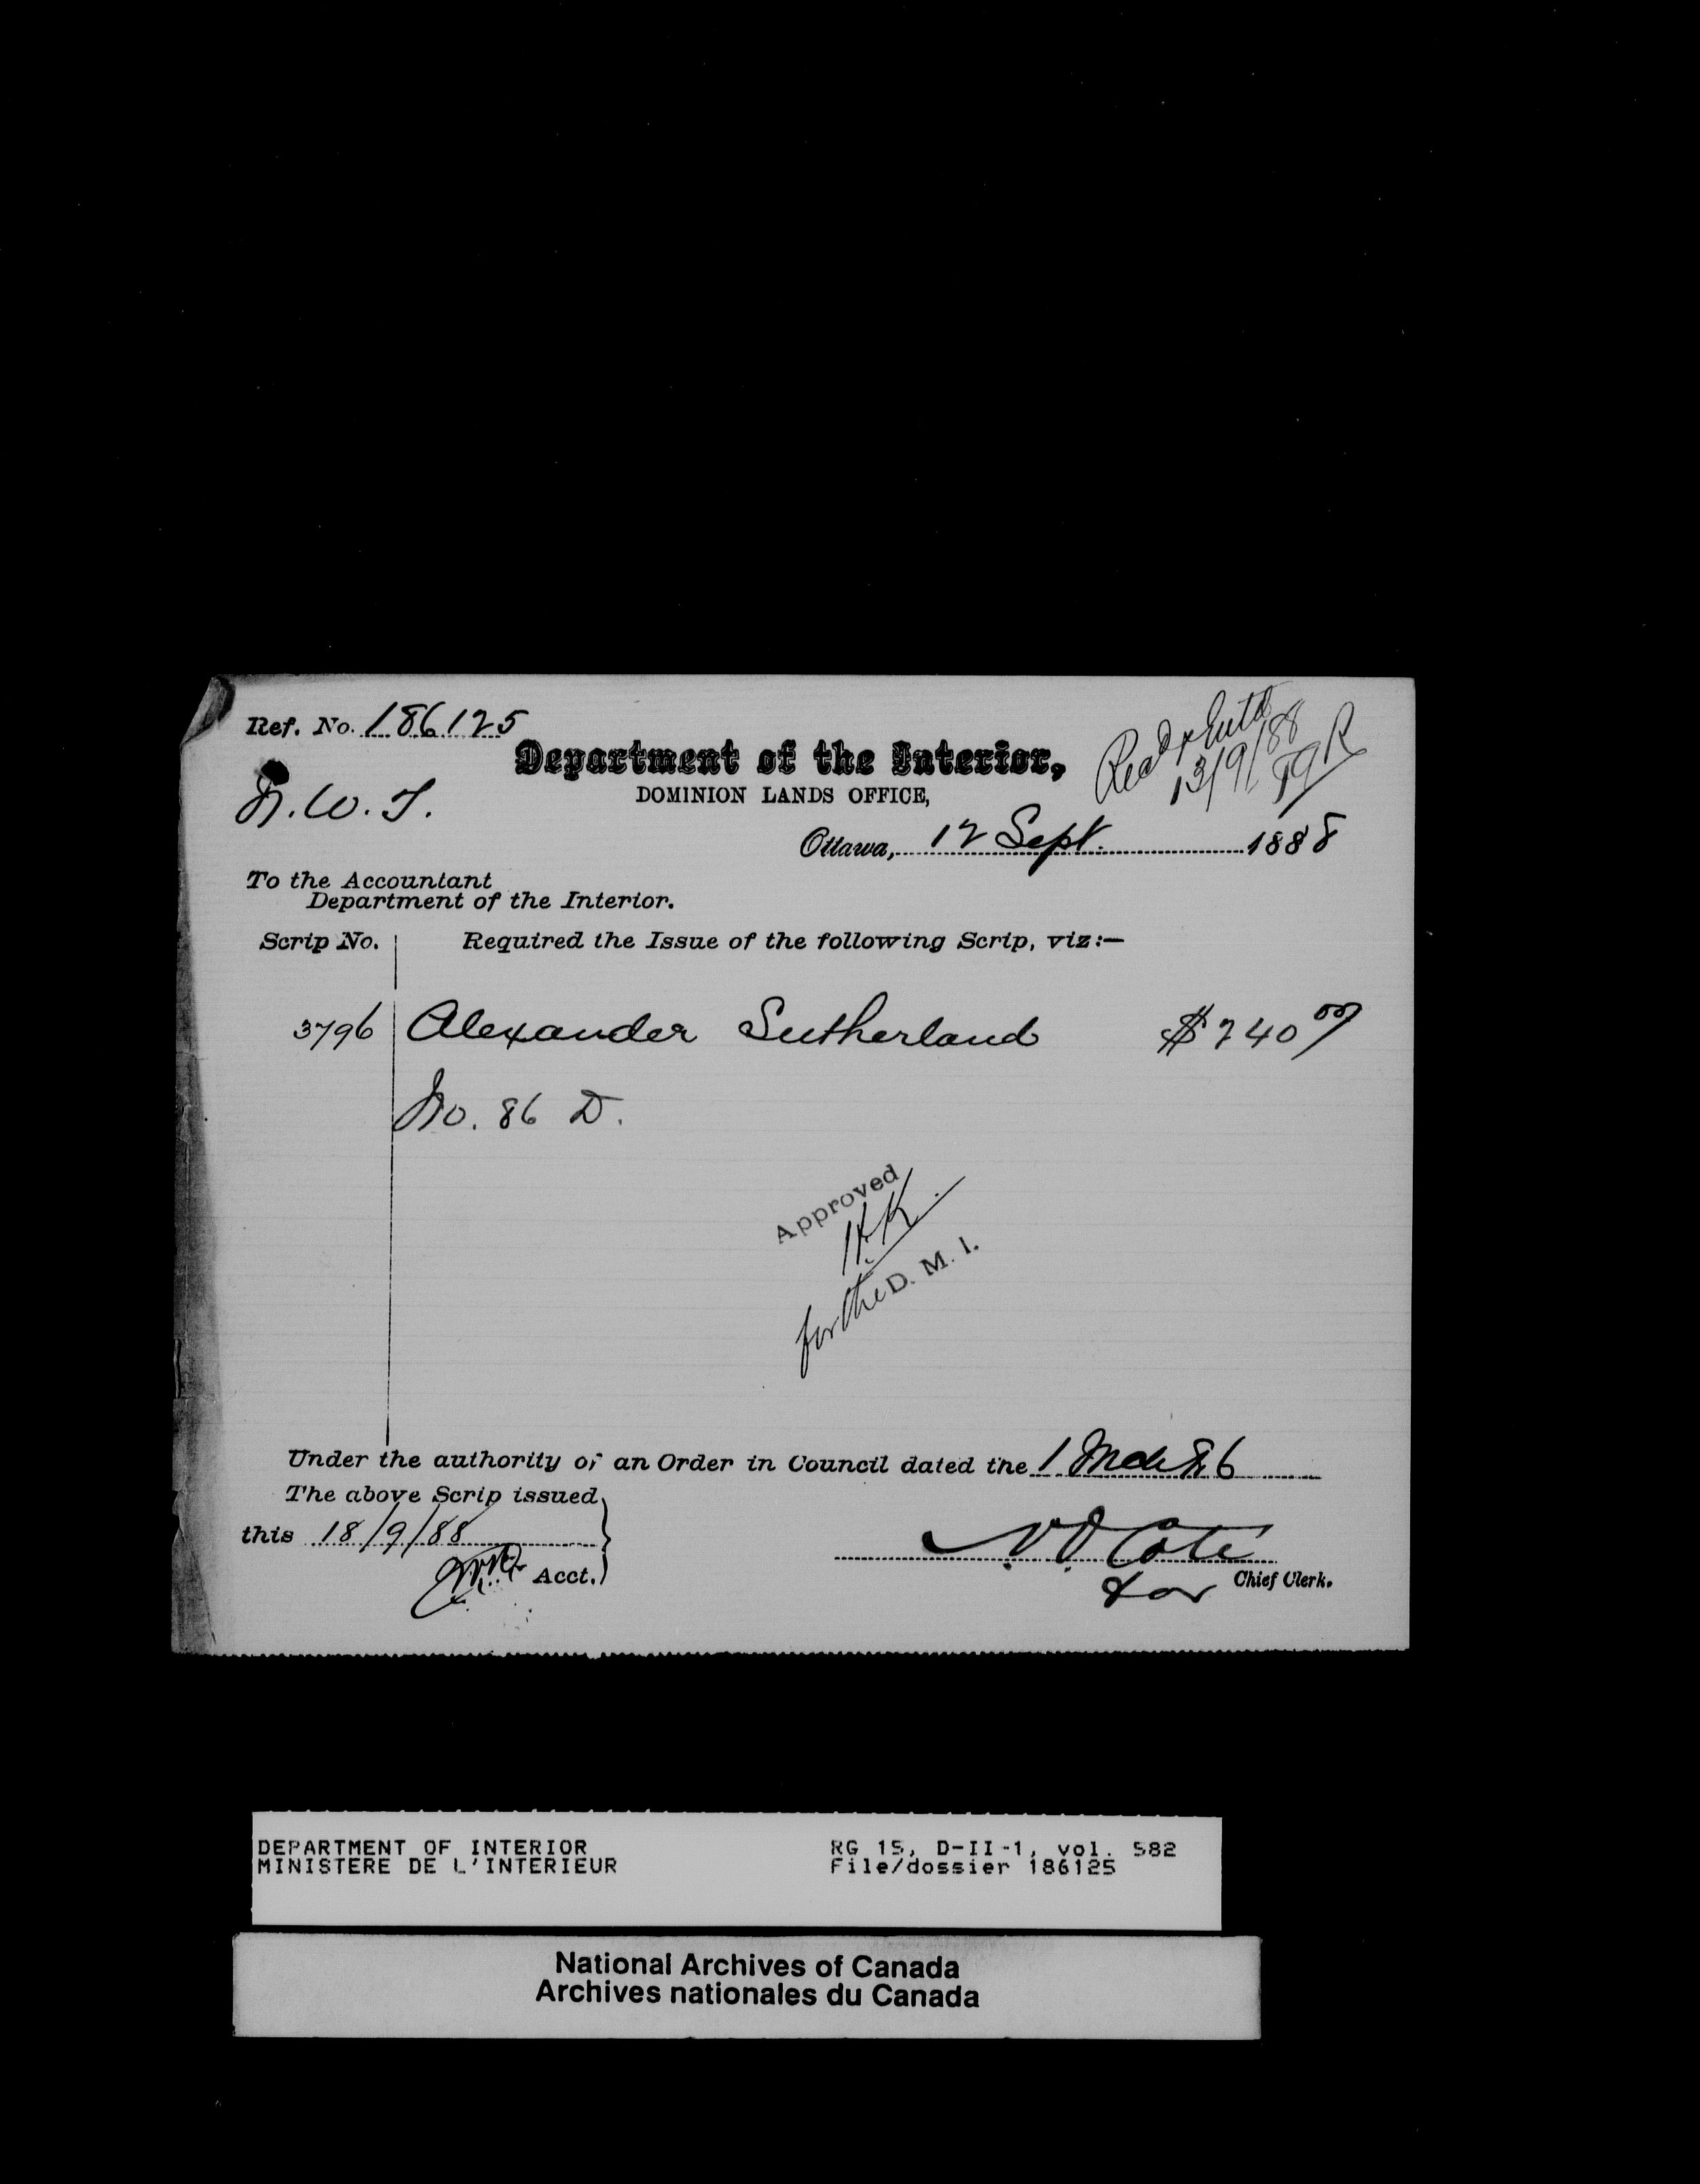 Ref. No. 186125
Rec'd & Ent'd
13/9/88
Department of the Interior,
N.W.T.
DOMINION LANDS OFFICE,
Ottawa, 12 Sept. 1888
To the Accountant
Department of the Interior.
Scrip No. Required the Issue of the following Scrip, viz:—
3796 Alexander Sutherland $240 00
No. 86 D.
Approved
H.K.
for the D. M. I.
Under the authority of an Order in Council dated the 1 Mch 86
The above Scrip issued
this 18/9/88
N O Coté
Acct.
for Chief Clerk.
DEPARTMENT OF INTERIOR RG 15, D-II-1, vol. 582
MINISTERE DE L'INTERIEUR File/dossier 186125
National Archives of Canada
Archives nationales du Canada